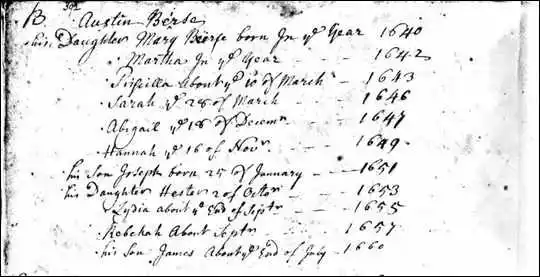 B. 392 Austin Bérse
his Daughter Mary Bierse born In yᵉ Year 1640
Martha In yᵉ Year - 1642
Priscilla About yᵉ 10 of March - 1643
Sarah yᵉ 28 of March - - 1646
Abigail yᵉ 18 of Decemʳ - - 1647
Hannah yᵉ 16 of Novʳ - - 1649
his Son Joseph born 25 of January - - 1651
his Daughter Hester 2 of Octoʳ - - 1653
Lydia about yᵉ End of Septʳ - - 1655
Rebekah About Septʳ - - 1657
his Son James About yᵉ End of July - 1660